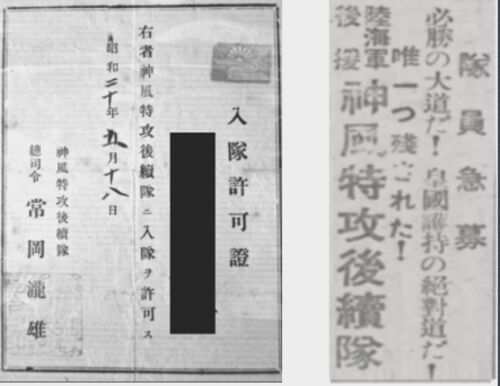 入隊許可證
右者神風特攻後續隊ニ入隊ヲ許可ス
昭和二十年五月十八日
神風特攻後續隊
總司令 常岡瀧雄
隊員急募
必勝の大道だ!皇國護持の絕對道だ!
唯一つ残された!
陸海軍
後援
神風特攻後續隊